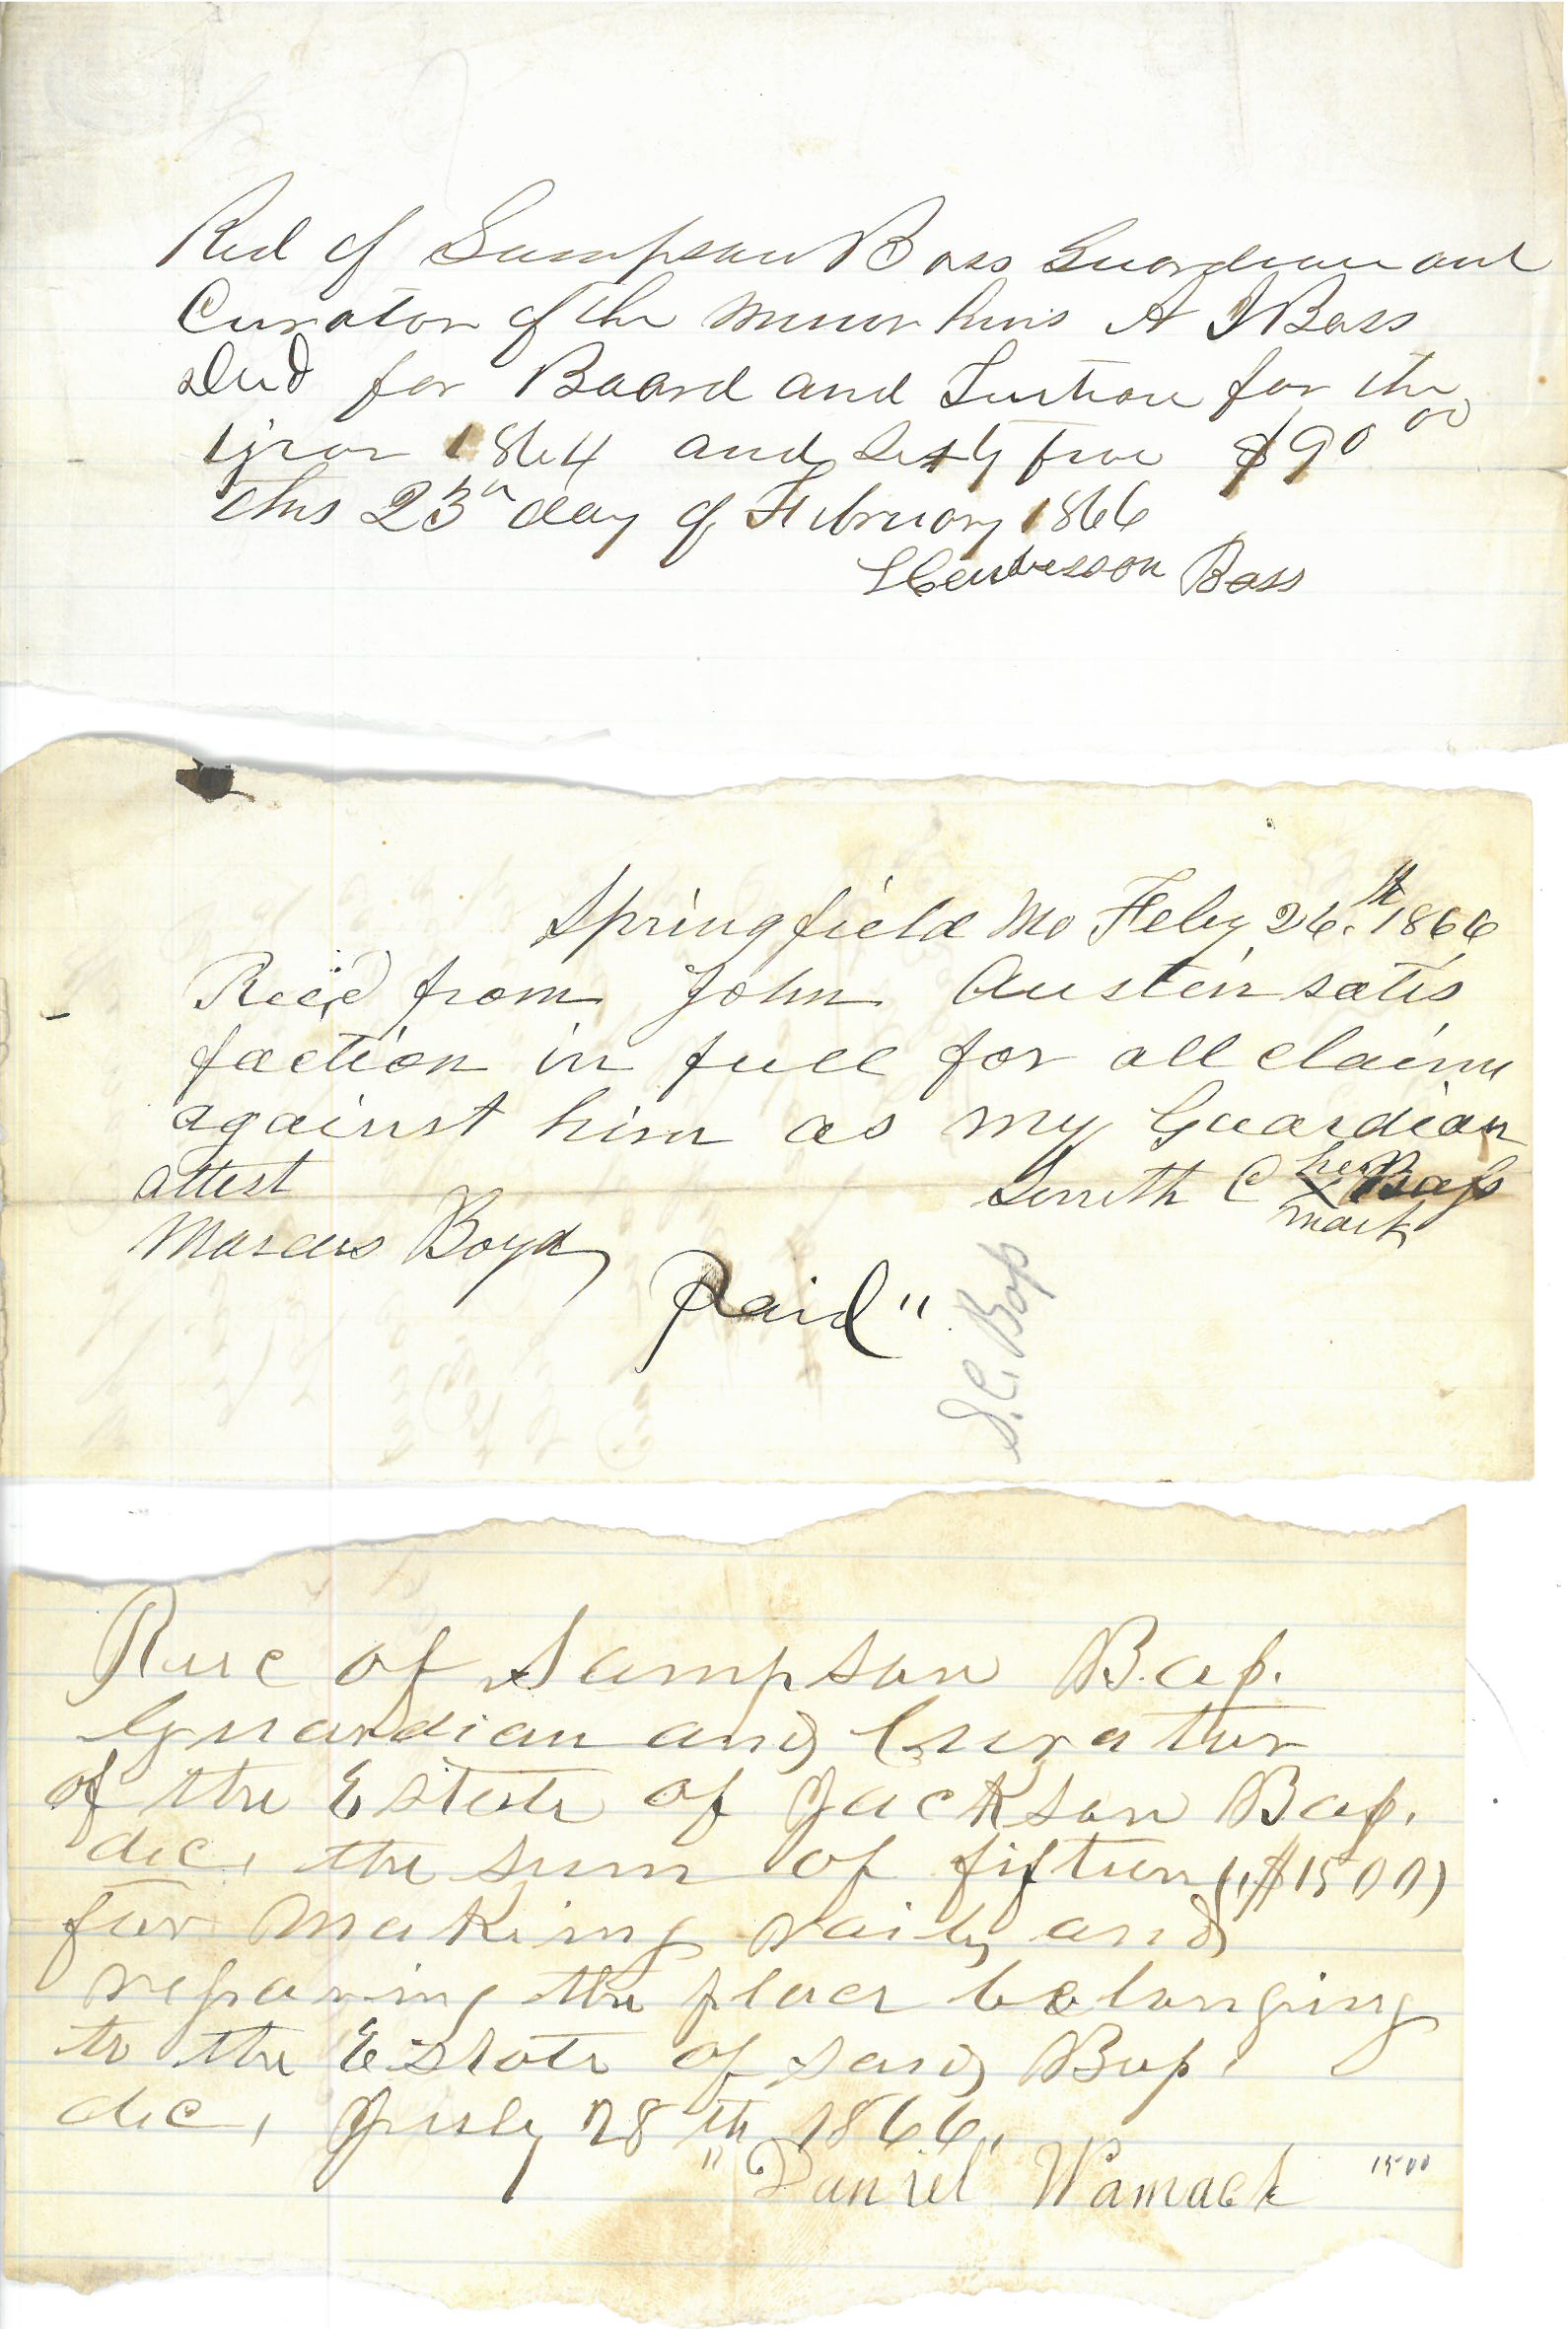 Recd of Sampson Bass Guardian and
Curator of the minor heirs A J Bass
Decd for Board and Tuition for the
year 1864 and Sixty five $90 00
this 23rd day of February 1866
Henderson Bass
Springfield Mo Feby 26.th 1866
Recd from John Austin satis
faction in full for all claims
against him as my Guardian
attest
C her Bass
x
mark
Marcus Boyd
Paid "
S. C. Bass
Rec of Sampson Bass.
Guardian and Curator
of the Estate of Jackson Bass.
dec, the sum of fifteen ($1500)
for making rails and
reparing the place belonging
to the Estate of said Bass.
dec, July 28th 1866,
"Daniel" Wamack 1500